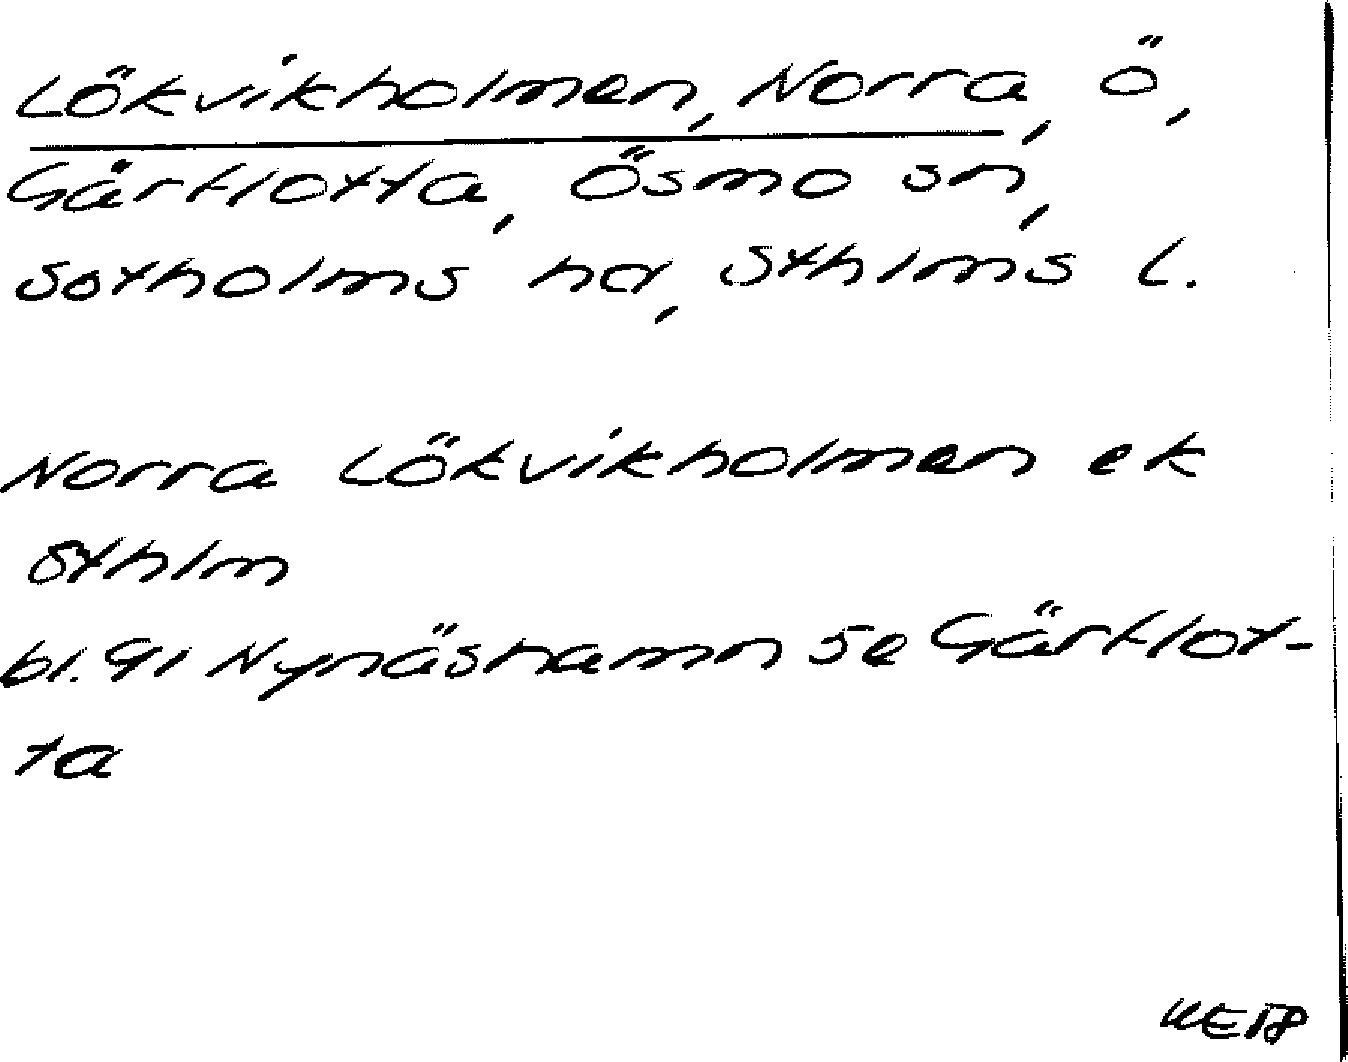 Lökvikholmen, Norra, ö,
Gårflotta, Ösmo sn,
Sotholms hd, Sthlms l.
Norra Lökvikholmen ek
Sthlm
bl. 91 Nynäshamn SE Gärflot-
ta